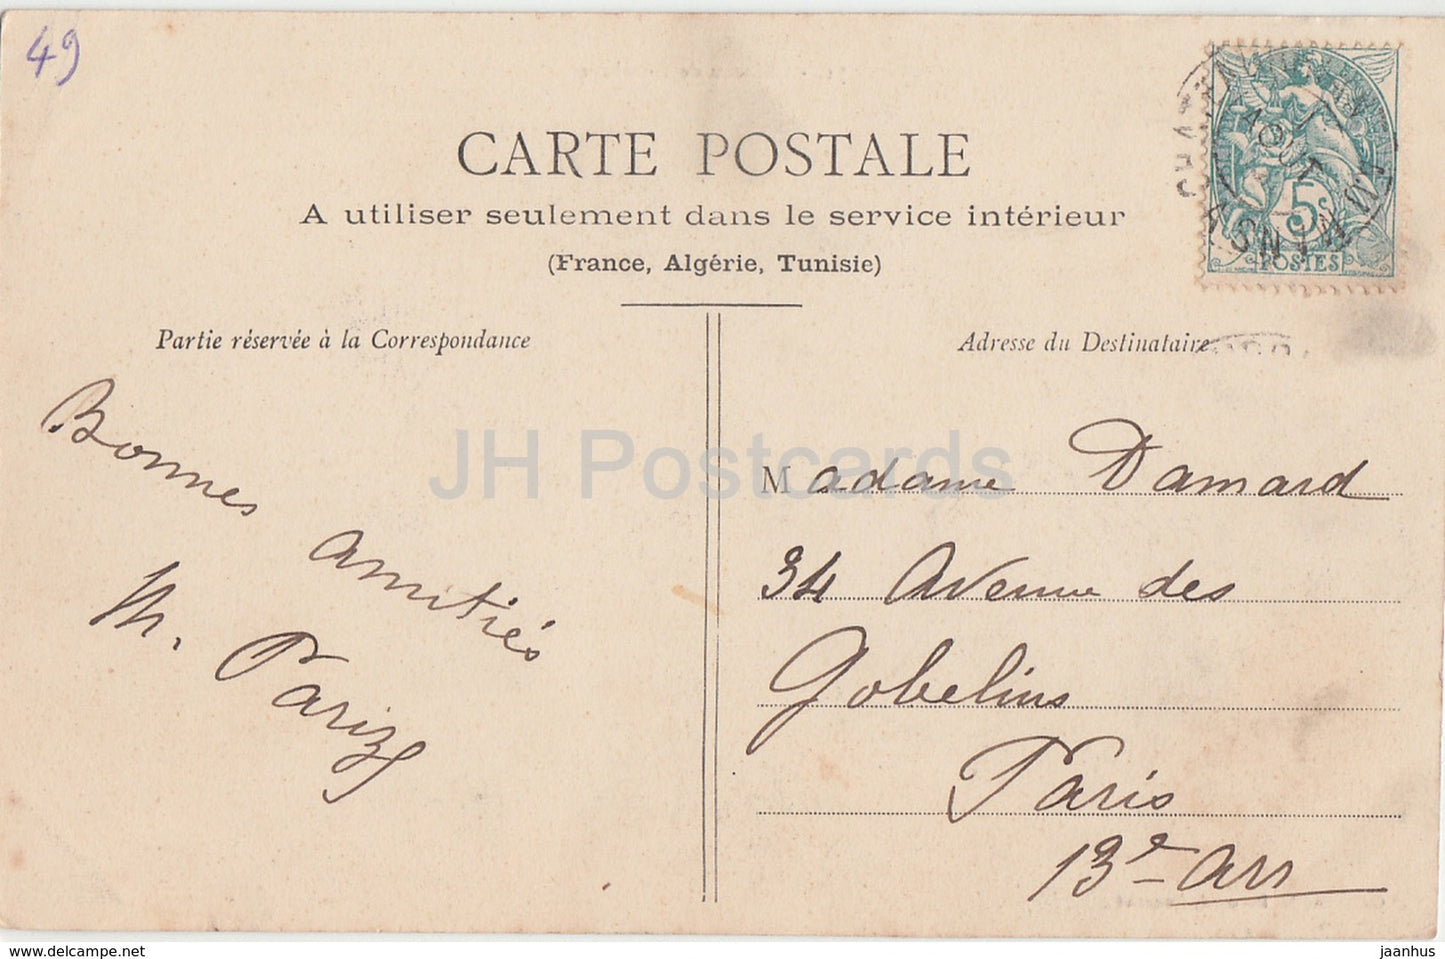 49
CARTE POSTALE
A utiliser seulement dans le service intérieur
(France, Algérie, Tunisie)
5c
POSTES
Partie réservée à la Correspondance
Adresse du Destinataire
Bonnes amitiés
M. Pariz
Madame Damard
34 Avenue des
Gobelins
Paris
13e arr
JH Postcards
www.delcampe.net
jaanhus